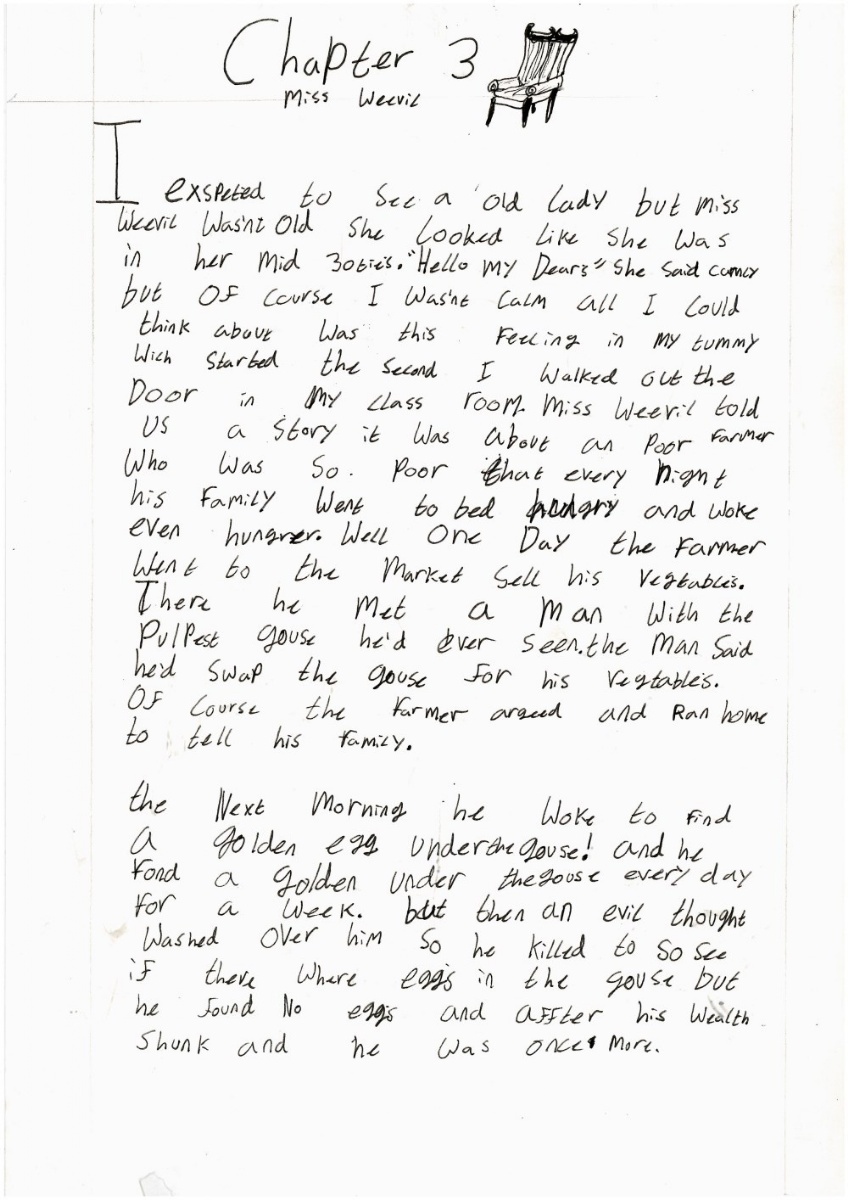 Chapter 3
Miss Weevil
I exspeted to see a old lady but miss
Weevil Wasn't Old She Looked Like She Was
in her Mid 30ties. "Hello MY Dears" She Said camly
but OF Course I Wasn't Calm all I Could
think about Was this Feeling in MY tummy
Wich Started the Second I Walked out the
Door in MY class room. Miss Weevil told
US a Story it Was about an Poor Farmer
Who Was So. Poor that every night
his Family Went to bed hungry and Woke
even hungrer. Well One Day the Farmer
Went to the Market Sell his Vegtables.
There he Met a Man With the
PulPest gouse he'd ever Seen. the Man Said
he'd Swap the gouse For his Vegtables.
OF Course the Farmer argeed and Ran home
to tell his Family.
the Next Morning he Woke to Find
a golden egg under the gouse! and he
Fond a golden under the gouse every day
For a Week. but then an evil thought
Washed Over him So he killed to So See
if there Where eggs in the gouse but
he Found No eggs and aFFter his Wealth
Shunk and he Was once More.